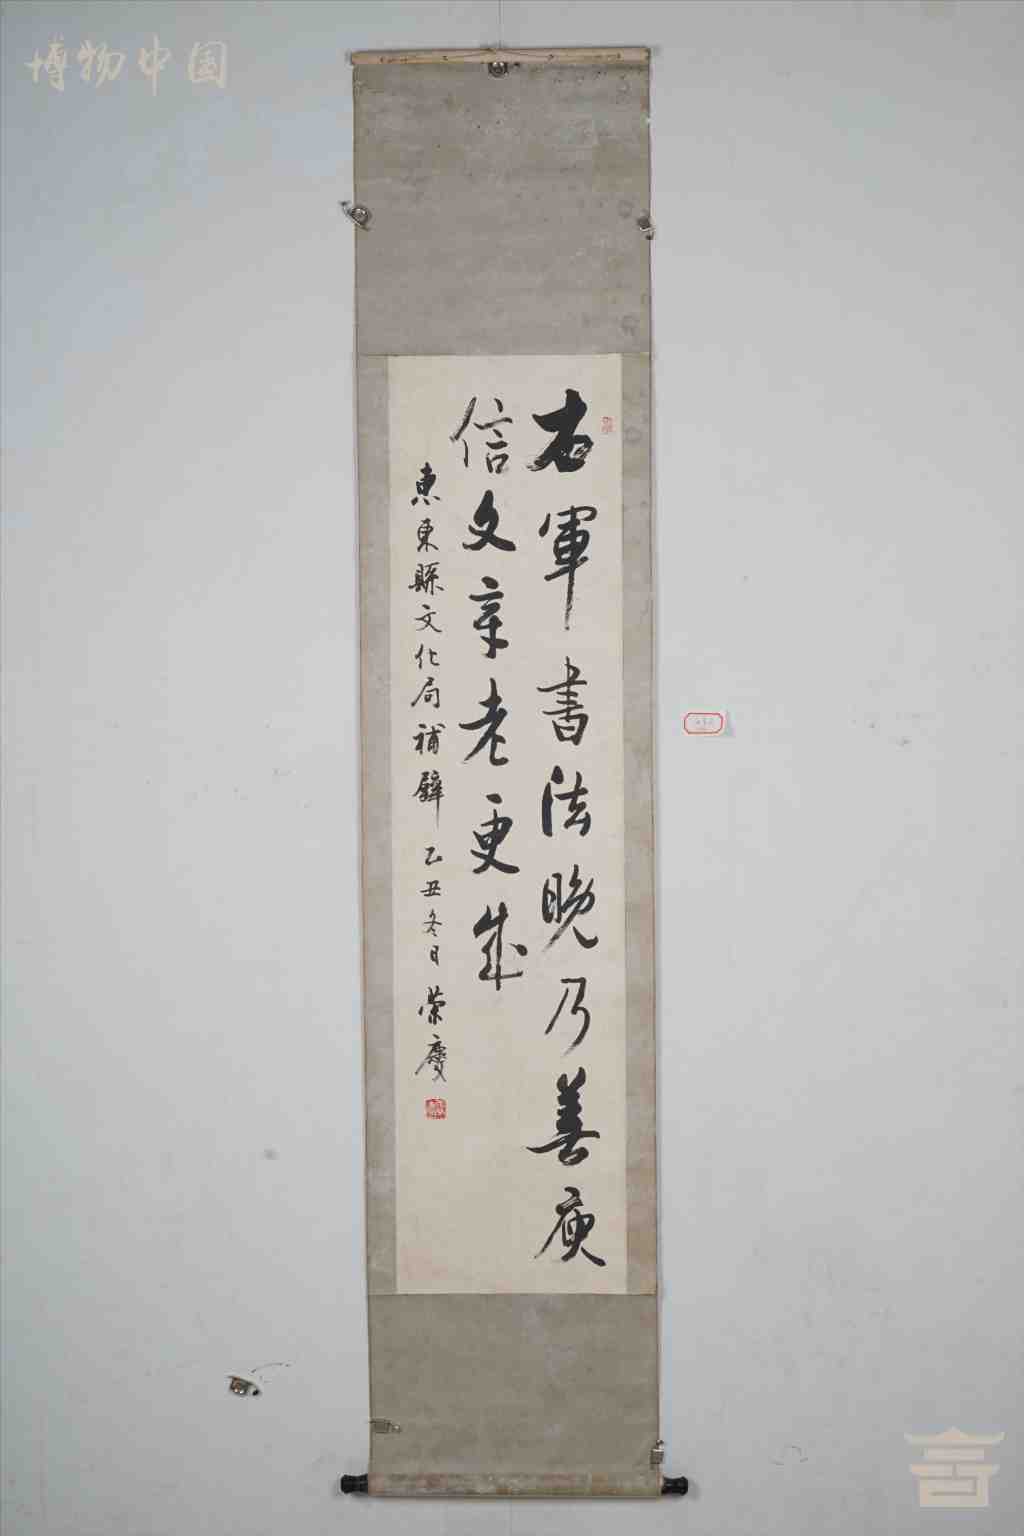 博物中国
右軍書法晚乃善庾
信文章老更成
惠東縣文化局補壁 乙丑冬日 荣慶